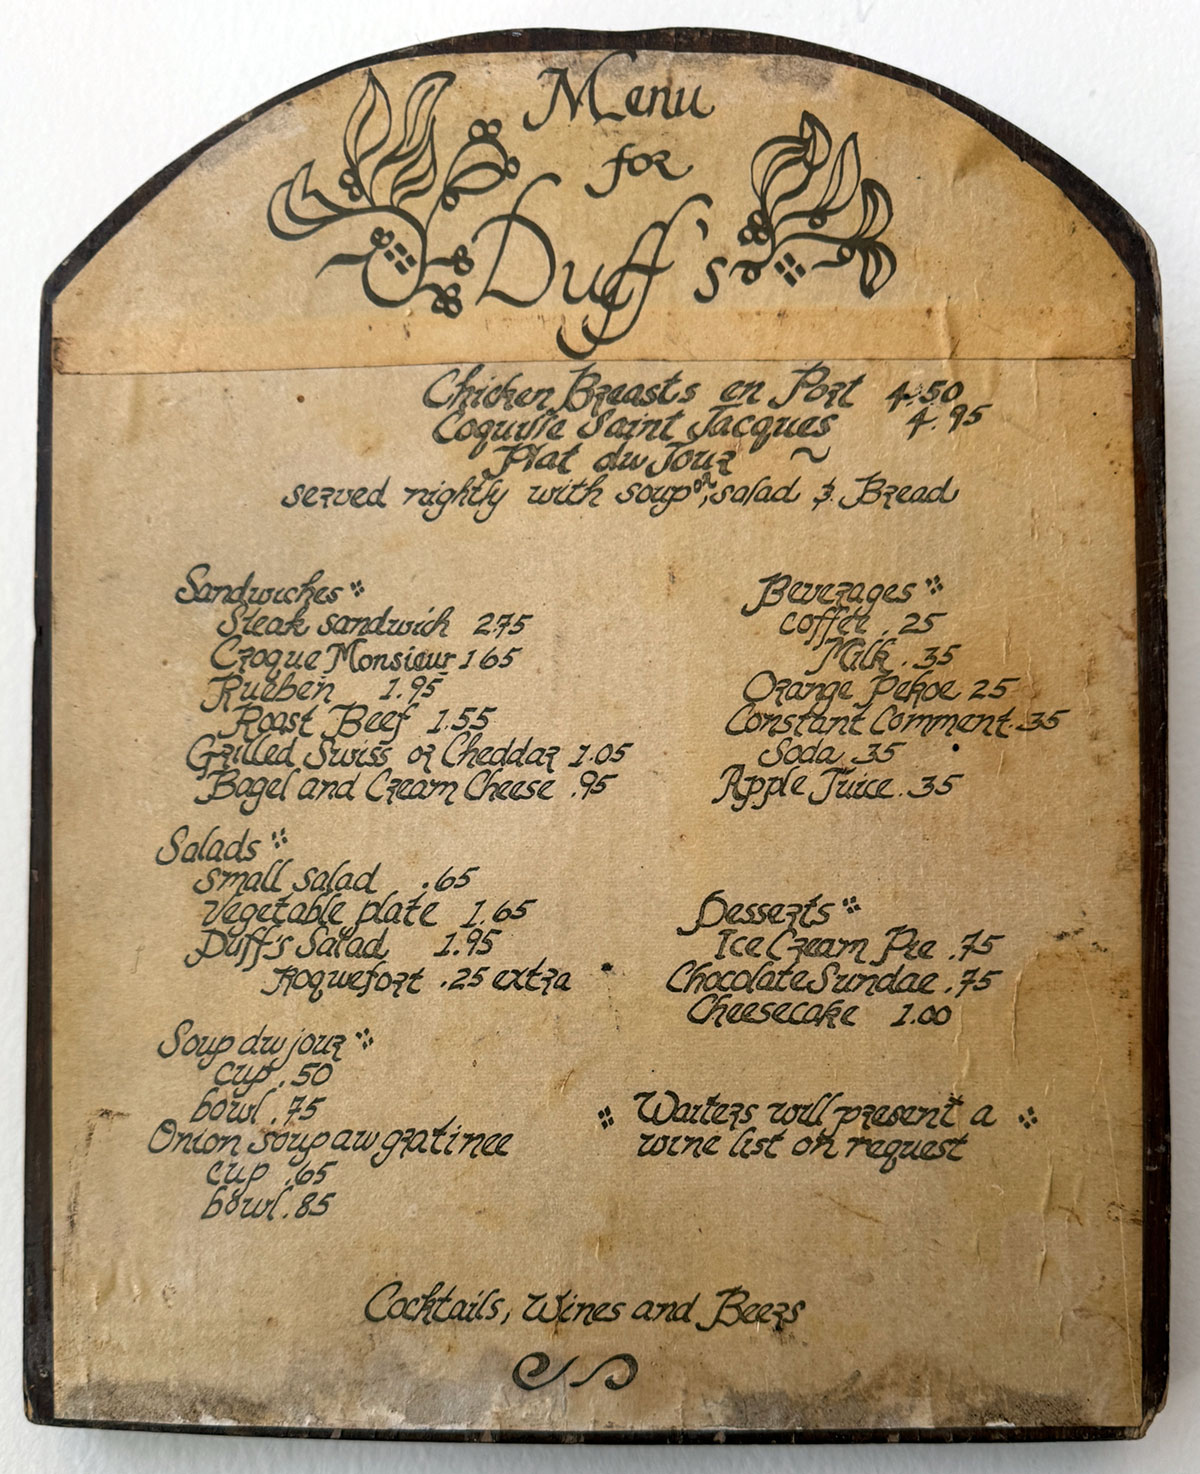 Menu
for
Duff's
Chicken Breasts en Port 4.50
Coquille Saint Jacques 4.95
Plat du Jour ~
served nightly with soup or, salad & Bread
Sandwiches
Steak sandwich 2.75
Croque Monsieur 1 65
Rueben 1.95
Roast Beef 1.55
Grilled Swiss or Cheddar 1.05
Bagel and Cream Cheese .95
Salads
small salad .65
vegetable plate 1.65
Duff's Salad 1.95
Roquefort .25 extra
Soup du jour
cup .50
bowl .75
Onion soup au gratinee
cup .65
bowl .85
Beverages
coffee .25
Milk .35
Orange Pekoe 25
Constant Comment .35
Soda .35
Apple Juice .35
Desserts
Ice Cream Pie .75
Chocolate Sundae .75
Cheesecake 1.00
Waiters will present a
wine list on request
Cocktails, Wines and Beers